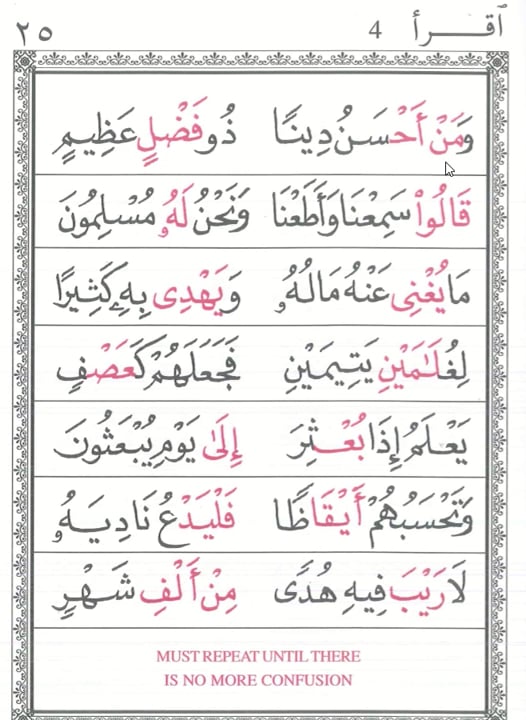 اَقـــــرأ 4 ٢٥
وَمَنْ أَحْسَنُ دِينًا ذُو فَضْلٍ عَظِيمٍ
قَالُوا۟ سَمِعْنَا وَأَطَعْنَا وَنَحْنُ لَهُۥ مُسْلِمُونَ
مَا يُغْنِى عَنْهُ مَالُهُۥ وَيَهْدِى بِهِۦ كَثِيرًا
لِغُلَـٰمَيْنِ يَتِيمَيْنِ فَجَعَلَهُمْ كَعَصْفٍ
يَعْلَمُ إِذَا بُعْثِرَ إِلَىٰ يَوْمِ يُبْعَثُونَ
وَتَحْسَبُهُمْ أَيْقَاظًا فَلْيَدْعُ نَادِيَهُۥ
لَا رَيْبَ فِيهِ هُدًى مِنْ أَلْفِ شَهْرٍ
MUST REPEAT UNTIL THERE
IS NO MORE CONFUSION